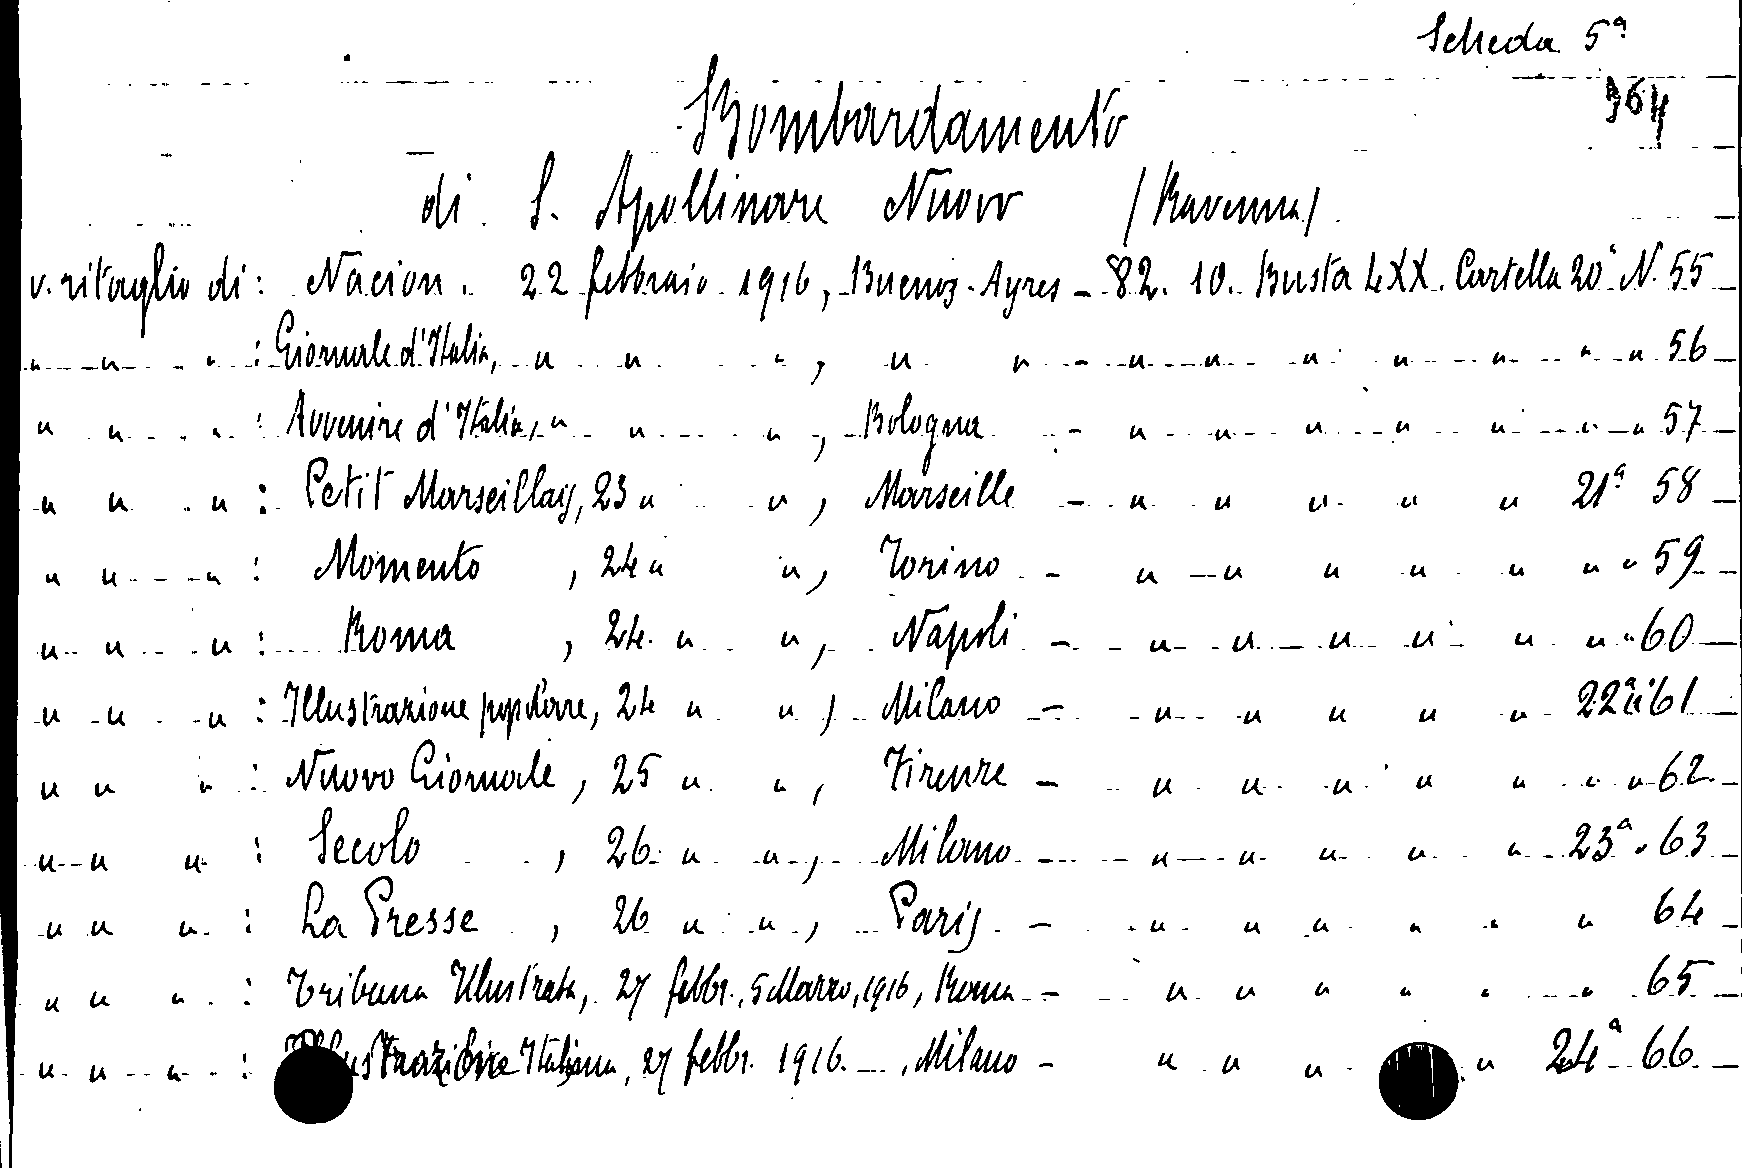 Scheda 5ª
364
Bombardamento
di S. Apollinare Nuovo (Ravenna)
v. ritaglio di: Nacion. 22 febbraio 1916, Buenos-Ayres - 82. 10. Busta LXX. Cartella 20ª N. 55
" " " : Giornale d'Italia, " " " , " " - " " " " " " " 56
" " " : Avvenire d'Italia, " " " , Bologna - " " " " " " " 57
" " " : Petit Marseillais, 23 " " , Marseille - " " " " " 21ª 58
" " " : Momento , 24 " " , Torino - " " " " " " " 59
" " " : Roma , 24 " " , Napoli - " " " " " " " 60
" " " : Illustrazione popolare, 24 " " , Milano - " " " " " 22ª " 61
" " " : Nuovo Giornale , 25 " " , Firenze - " " " " " " " 62
" " " : Secolo , 26 " " , Milano - " " " " " 23ª " 63
" " " : La Presse , 26 " " , Paris - " " " " " " 64
" " " : Tribuna Illustrata, 27 febbr., 5 Marzo, 1916, Roma - " " " " " " 65
" " " : Illustrazione Italiana, 27 febbr. 1916. , Milano - " " " " 24ª 66